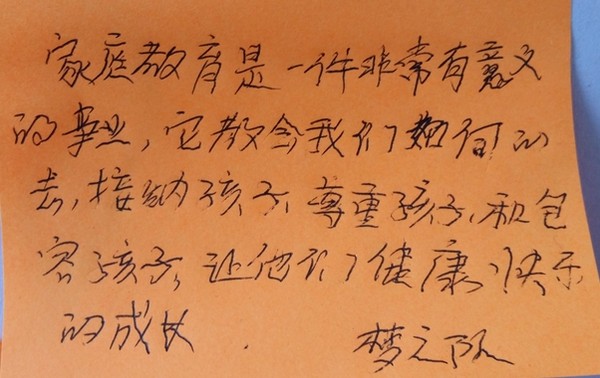 家庭教育是一件非常有意义
的事业,它教会我们如何的
去,接纳孩子、尊重孩子,和包
容孩子,让他们健康快乐
的成长.
梦之队